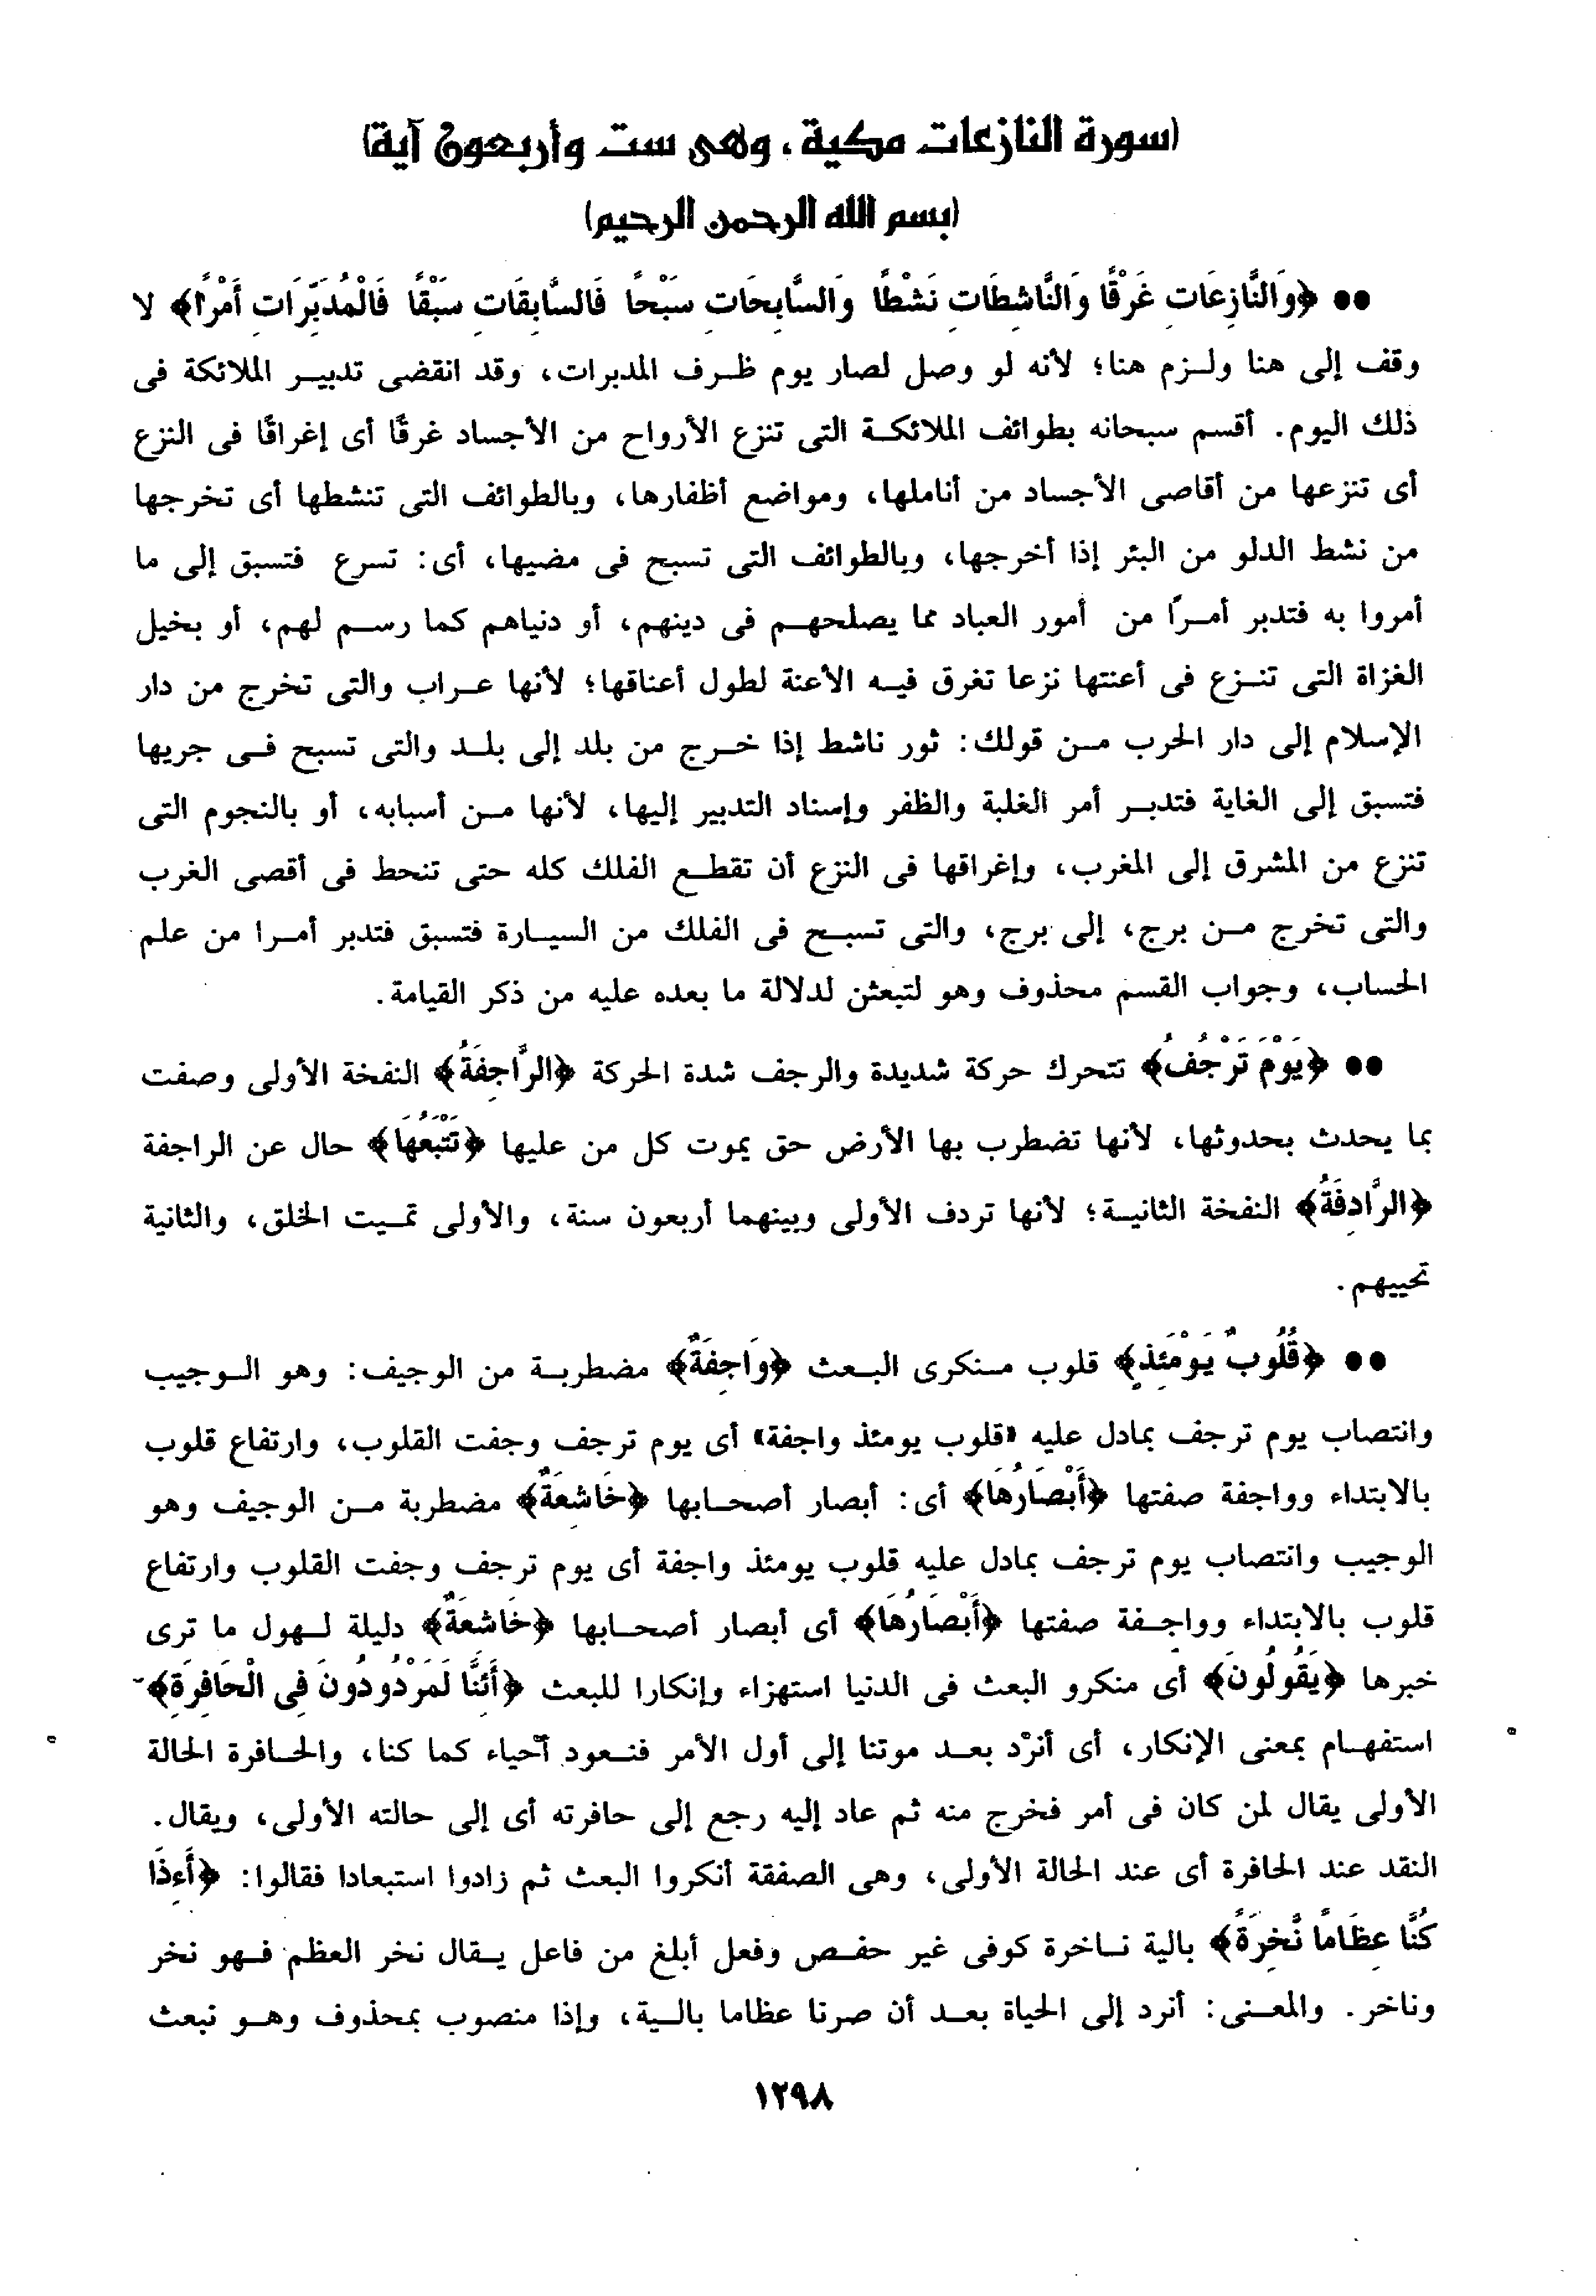 (سورة النازعات مكية، وهى ست وأربعون آية)
(بسم الله الرحمن الرحيم)
●● ﴿وَالنَّازِعَاتِ غَرْقًا وَالنَّاشِطَاتِ نَشْطًا وَالسَّابِحَاتِ سَبْحًا فَالسَّابِقَاتِ سَبْقًا فَالْمُدَبِّرَاتِ أَمْرًا﴾ لا
وقف إلى هنا ولزم هنا؛ لأنه لو وصل لصار يوم ظرف المدبرات، وقد انقضى تدبير الملائكة فى
ذلك اليوم. أقسم سبحانه بطوائف الملائكة التى تنزع الأرواح من الأجساد غرقًا أى إغراقًا فى النزع
أى تنزعها من أقاصى الأجساد من أناملها، ومواضع أظفارها، وبالطوائف التى تنشطها أى تخرجها
من نشط الدلو من البئر إذا أخرجها، وبالطوائف التى تسبح فى مضيها، أى: تسرع فتسبق إلى ما
أمروا به فتدبر أمرًا من أمور العباد مما يصلحهم فى دينهم، أو دنياهم كما رسم لهم، أو بخيل
الغزاة التى تنزع فى أعنتها نزعا تغرق فيه الأعنة لطول أعناقها؛ لأنها عراب والتى تخرج من دار
الإسلام إلى دار الحرب من قولك: ثور ناشط إذا خرج من بلد إلى بلد والتى تسبح فى جريها
فتسبق إلى الغاية فتدبر أمر الغلبة والظفر وإسناد التدبير إليها، لأنها من أسبابه، أو بالنجوم التى
تنزع من المشرق إلى المغرب، وإغراقها فى النزع أن تقطع الفلك كله حتى تنحط فى أقصى الغرب
والتى تخرج من برج، إلى برج، والتى تسبح فى الفلك من السيارة فتسبق فتدبر أمرا من علم
الحساب، وجواب القسم محذوف وهو لتبعثن لدلالة ما بعده عليه من ذكر القيامة.
●● ﴿يَوْمَ تَرْجُفُ﴾ تتحرك حركة شديدة والرجف شدة الحركة ﴿الرَّاجِفَةُ﴾ النفخة الأولى وصفت
بما يحدث بحدوثها، لأنها تضطرب بها الأرض حق يموت كل من عليها ﴿تَتْبَعُهَا﴾ حال عن الراجفة
﴿الرَّادِفَةُ﴾ النفخة الثانية؛ لأنها تردف الأولى وبينهما أربعون سنة، والأولى تميت الخلق، والثانية
تحييهم.
●● ﴿قُلُوبٌ يَوْمَئِذٍ﴾ قلوب منكرى البعث ﴿وَاجِفَةٌ﴾ مضطربة من الوجيف: وهو الوجيب
وانتصاب يوم ترجف بمادل عليه «قلوب يومئذ واجفة» أى يوم ترجف وجفت القلوب، وارتفاع قلوب
بالابتداء وواجفة صفتها ﴿أَبْصَارُهَا﴾ أى: أبصار أصحابها ﴿خَاشِعَةٌ﴾ مضطربة من الوجيف وهو
الوجيب وانتصاب يوم ترجف بمادل عليه قلوب يومئذ واجفة أى يوم ترجف وجفت القلوب وارتفاع
قلوب بالابتداء وواجفة صفتها ﴿أَبْصَارُهَا﴾ أى أبصار أصحابها ﴿خَاشِعَةٌ﴾ دليلة لهول ما ترى
خبرها ﴿يَقُولُونَ﴾ أى منكرو البعث فى الدنيا استهزاء وإنكارا للبعث ﴿أَئِنَّا لَمَرْدُودُونَ فِى الْحَافِرَةِ﴾
استفهام بمعنى الإنكار، أى أنرَد بعد موتنا إلى أول الأمر فنعود أحياء كما كنا، والحافرة الحالة
الأولى يقال لمن كان فى أمر فخرج منه ثم عاد إليه رجع إلى حافرته أى إلى حالته الأولى، ويقال.
النقد عند الحافرة أى عند الحالة الأولى، وهى الصفقة أنكروا البعث ثم زادوا استبعادا فقالوا: ﴿أَءِذَا
كُنَّا عِظَامًا نَّخِرَةً﴾ بالية ناخرة كوفى غير حفص وفعل أبلغ من فاعل يقال نخر العظم فهو نخر
وناخر. والمعنى: أنرد إلى الحياة بعد أن صرنا عظاما بالية، وإذا منصوب بمحذوف وهو نبعث
١٢٩٨